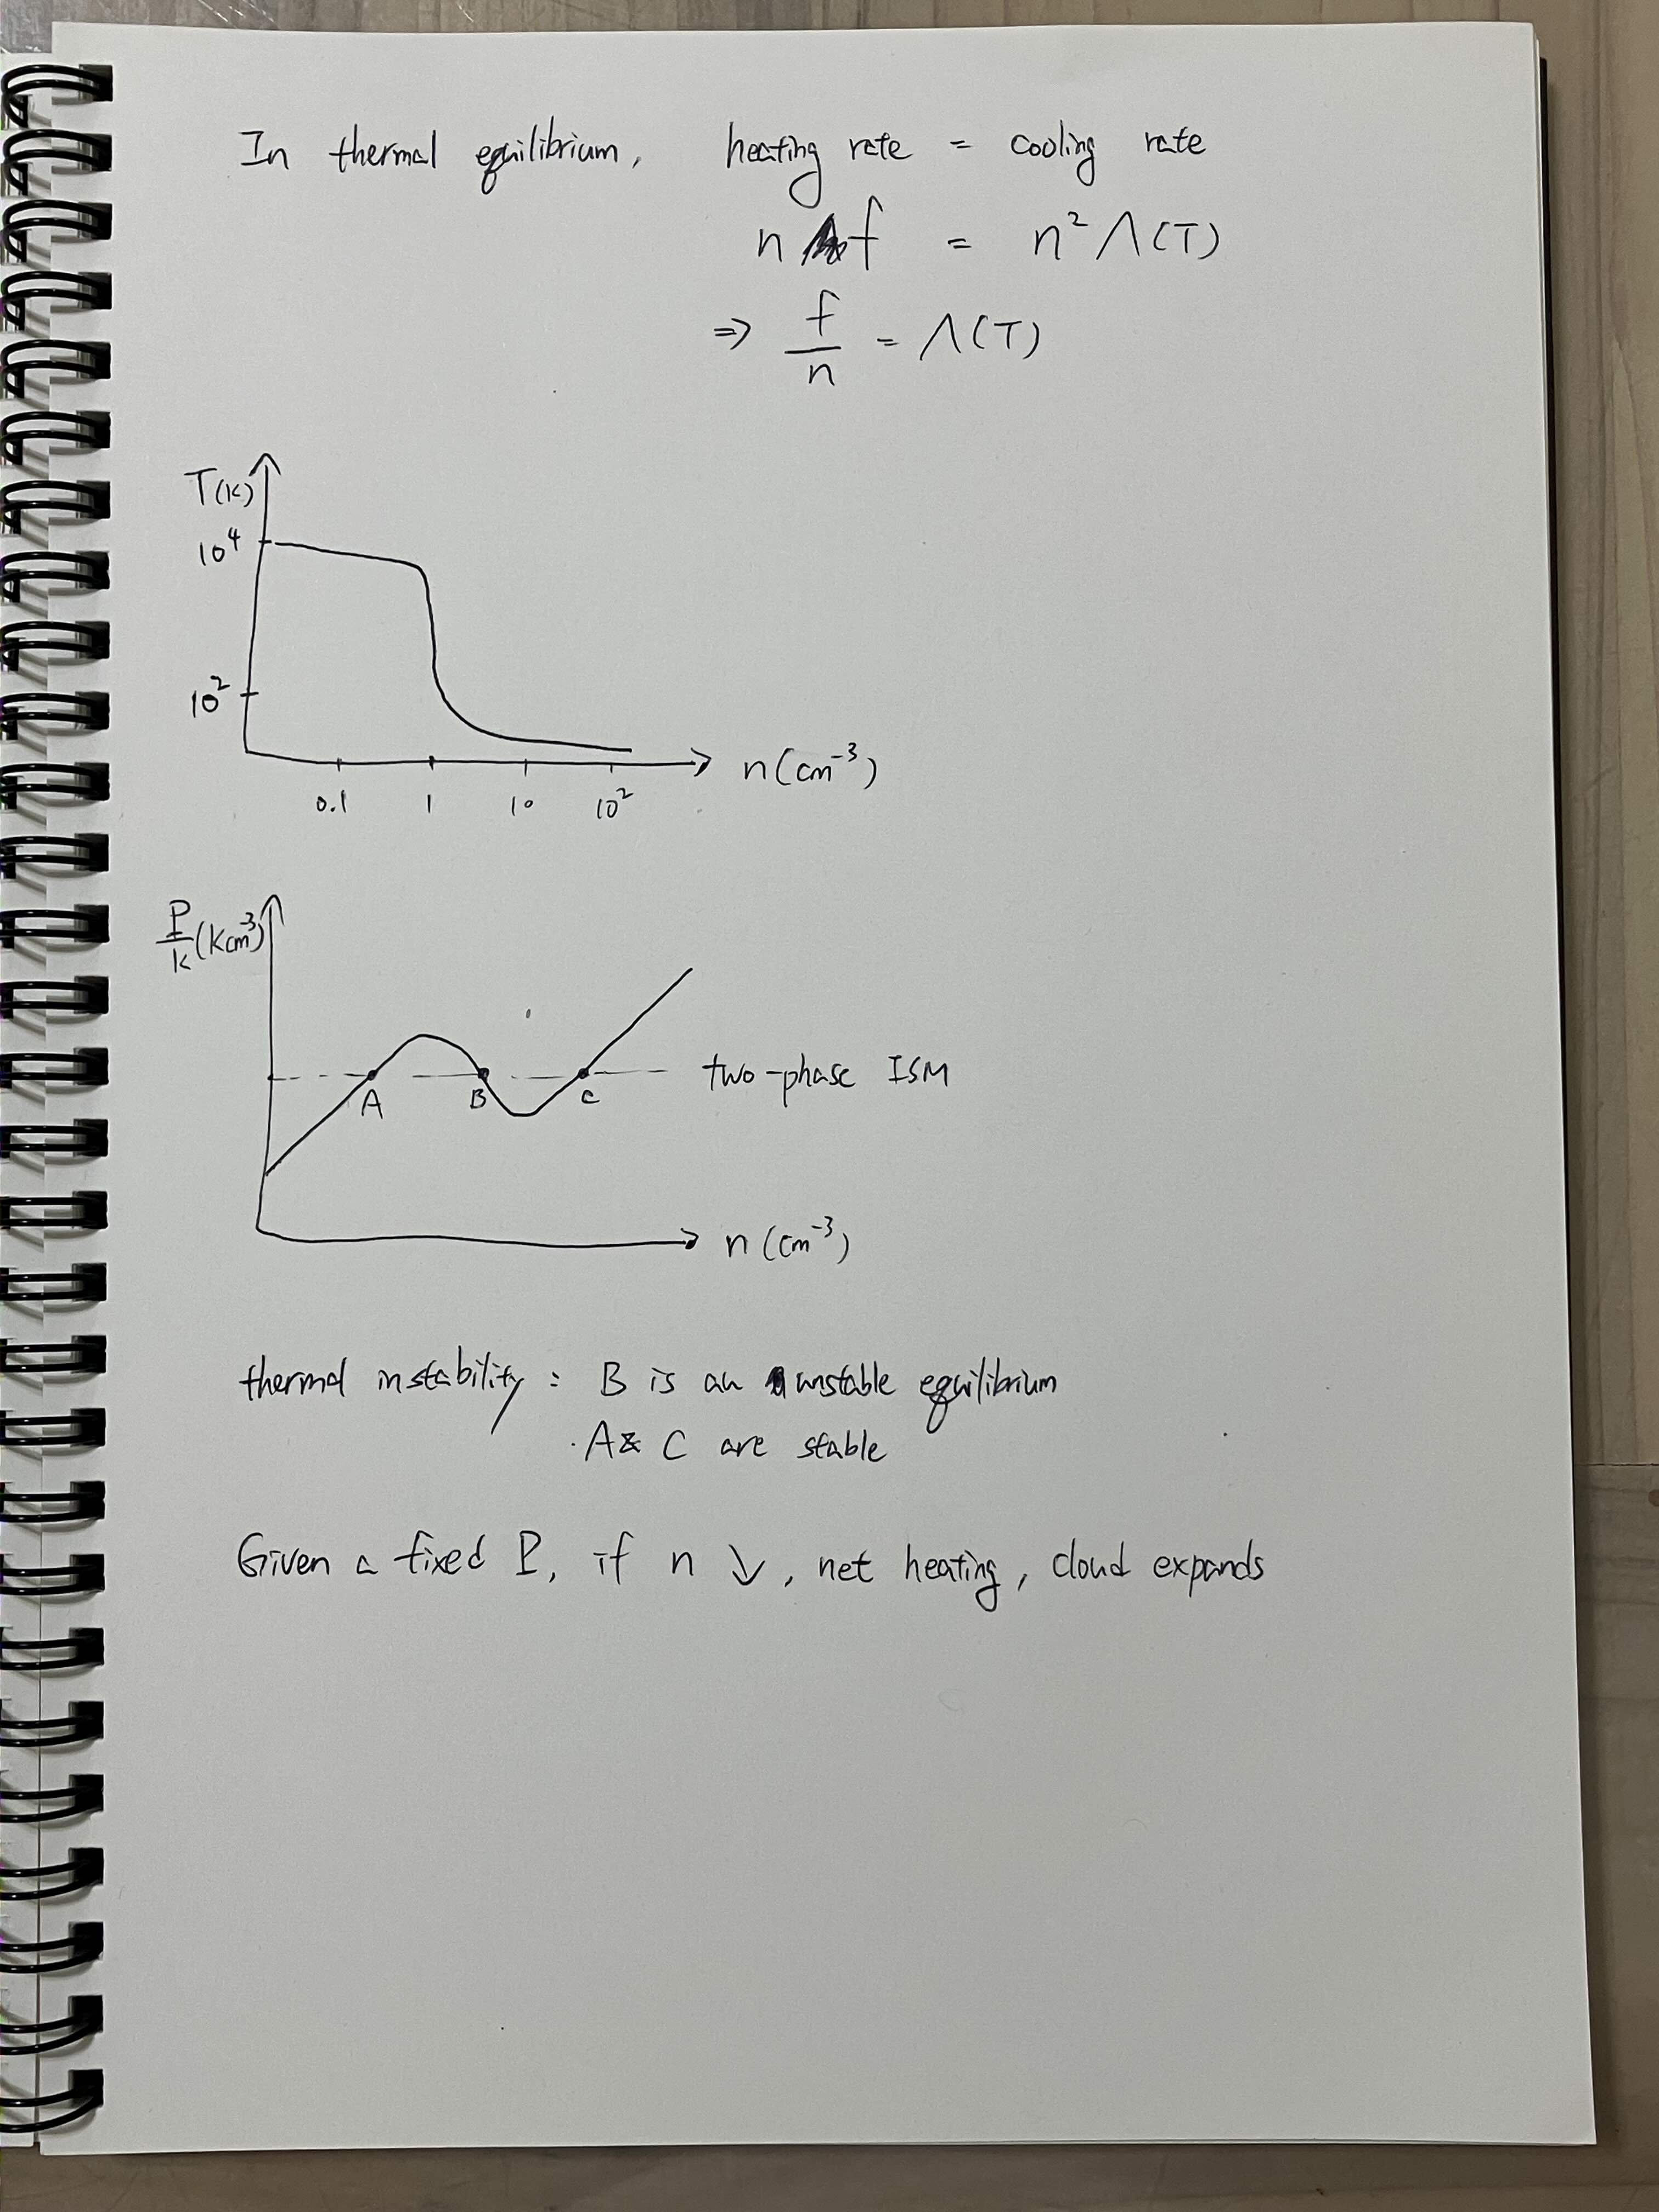 In thermal equilibrium, heating rate = cooling rate
n f = n² Λ(T)
⇒ f/n = Λ(T)
T(K)
10⁴
10²
0.1 1 10 10²
n(cm⁻³)
P/k (Kcm⁻³)
A B C
two-phase ISM
n (cm⁻³)
thermal instability : B is an unstable equilibrium
A & C are stable
Given a fixed P, if n ↓, net heating, cloud expands